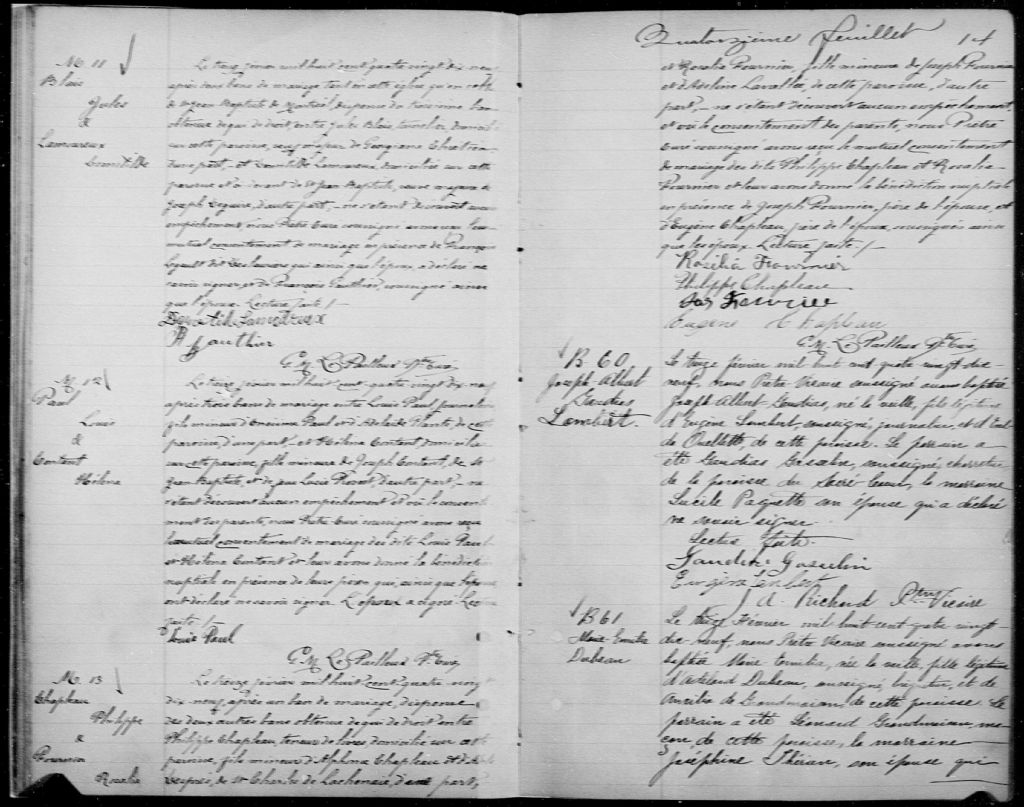 M. 11
Blais
Jules
&
Lamoureux
Domitilde
Le treize février mil huit cent quatre vingt dix neuf
après deux bans de mariage tant en cette église qu'en celle
de St Jean Baptiste de Montréal dispense du troisième ban
obtenue de qui de droit, entre Jules Blais, tonnelier, domicilié
sur cette paroisse, veuf majeur de Georgiana Chrétien
d'une part, et Domitilde Lamoureux, domiciliée sur cette
paroisse et ci-devant de St Jean Baptiste, veuve majeure de
Joseph Seguin, d'autre part, ne s'étant découvert aucun
empêchement, nous Prêtre Curé soussigné avons reçu leur
mutuel consentement de mariage en présence de François
Legault dit Deslauriers qui ainsi que l'époux, a déclaré ne
savoir signer, et de François Gauthier, soussigné ainsi
que l'épouse. Lecture faite. /
Domitild Lamoureux
F Gauthier
G. M. Le Pailleur Ptre Curé
M. 12
Paul
Louis
&
Contant
Hélène
Le treize février mil huit cent quatre vingt dix neuf
après trois bans de mariage entre Louis Paul journalier
fils mineur d'Onésime Paul et d'Adelaide Plante, de cette
paroisse, d'une part, et Hélène Contant domiciliée
sur cette paroisse, fille mineure de Joseph Contant, de St
Jean Baptiste, et de feu Louise, d'autre part, ne
s'étant découvert aucun empêchement et vû le consente
ment des parents, nous Prêtre Curé soussigné avons reçu
le mutuel consentement de mariage des dits Louis Paul
et Hélène Contant et leur avons donné la bénédiction
nuptiale en présence de leurs pères qui, ainsi que l'épouse
ont déclaré ne savoir signer. L'époux a signé. Lecture
faite. /
Louis Paul
G. M. Le Pailleur Ptre Curé
M. 13
Chapleau
Philippe
&
Fournier
Rosalie
Le treize février mil huit cent quatre vingt
dix neuf, après un ban de mariage, dispense
des deux autres bans obtenue de qui de droit entre
Philippe Chapleau, teneur de livres, domicilié sur cette
paroisse, fils mineur d'Alphonse Chapleau et d'
Després, de St Charles de Lachenaie, d'une part,
Quatorzième feuillet 14
et Rosalie Fournier, fille mineure de Joseph Fournier
et d'Adeline Lavallée, de cette paroisse, d'autre
part, ne s'étant découvert aucun empêchement,
et vû le consentement des parents, nous Prêtre
Curé soussigné avons reçu le mutuel consentement
de mariage des dits Philippe Chapleau et Rosalie
Fournier et leur avons donné la bénédiction nuptiale
en présence de Joseph Fournier, père de l'épouse, et
d'Eugène Chapleau, père de l'époux, soussignés ainsi
que les époux. Lecture faite. /
Rosilia Fournier
Philippe Chapleau
Jos Fournier
Eugène Chapleau
G. M. Le Pailleur Ptre Curé
B 60
Joseph Albert
Gaudias
Lambert.
Le treize février mil huit cent quatre vingt dix
neuf, nous Prêtre Vicaire soussigné avons baptisé
Joseph Albert Gaudias, né la veille, fils légitime
d'Eugène Lambert, soussigné, journalier, et d'
de Ouellette, de cette paroisse. Le parrain a
été Gaudias Gosselin, soussigné, charretier
de la paroisse du Sacré Coeur, la marraine
Lucile Paquette son épouse qui a déclaré
ne savoir signer.
Lecture faite.
Gaudias Gosselin
Eugène Lambert
J. A. Richard Ptre Vicaire
B 61
Marie Emilia
Dubeau
Le treize Février mil huit cent quatre vingt
dix neuf, nous Prêtre Vicaire soussigné avons
baptisé Marie Emilia, née la veille, fille légitime
d'Adelard Dubeau, soussigné, briquetier, et de
Amélia de Grandmaison, de cette paroisse. Le
parrain a été Léonard Grandmaison, ma
çon, de cette paroisse, la marraine
Joséphine Thérien, son épouse qui